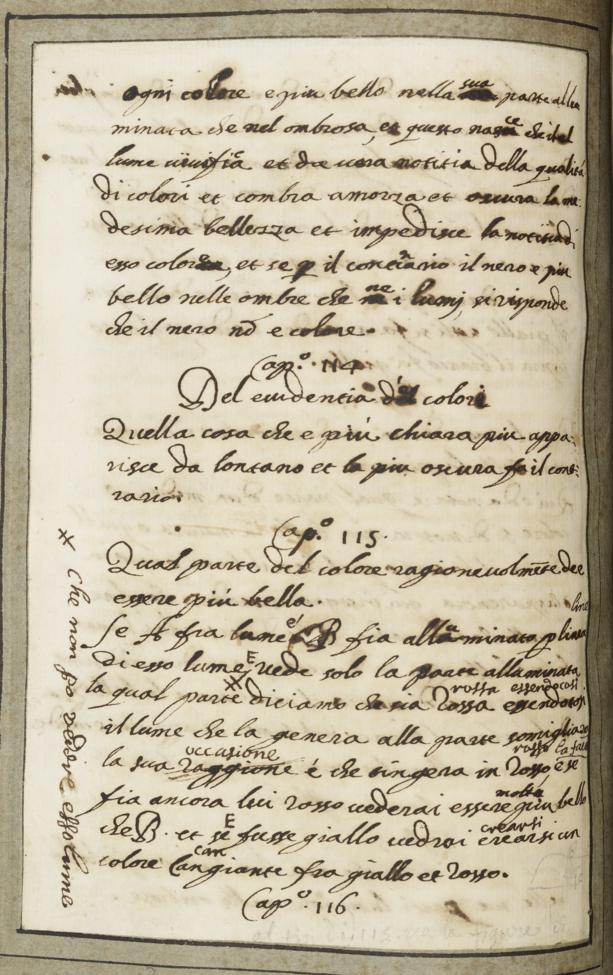 ogni colore e piu bello nella sua parte allu
minata che nel ombrosa, et questo nasce che il
lume vivifica et da vera notitia della qualità
di colori et l'ombra amorza et oscura la me
desima bellezza et impedisce la notitia di
esso colore, et se p il contrario il nero e piu
bello nelle ombre che ne i lumj, si risponde
che il nero nō e colore.
Cap.º 114
Del evidentia d colori
Quella cosa che e piú chiara piu appa
risce da lontano et la piu oscura fa il cont
rario.
Cap.º 115.
Qual parte del colore ragionevolmēte dee
essere piú bella.
linea
Se A fra lume é B fia alluminato p linea
di esso lume E vede solo la parte alluminata
rossa essendo cosi
la qual parte diciamo che sia rossa essendo
il lume che la genera alla parte somigliarà
occasione rosso la
la sua raggione é che tingera in rosso, e se
molto
fia ancora lui rosso vederai essere piu bello
E crearsi
che B. et se fusse giallo vedrai crearsi un
can
colore Cangiante fra giallo et rosso.
Cap.º 116.
# Che non po vedere esso lume